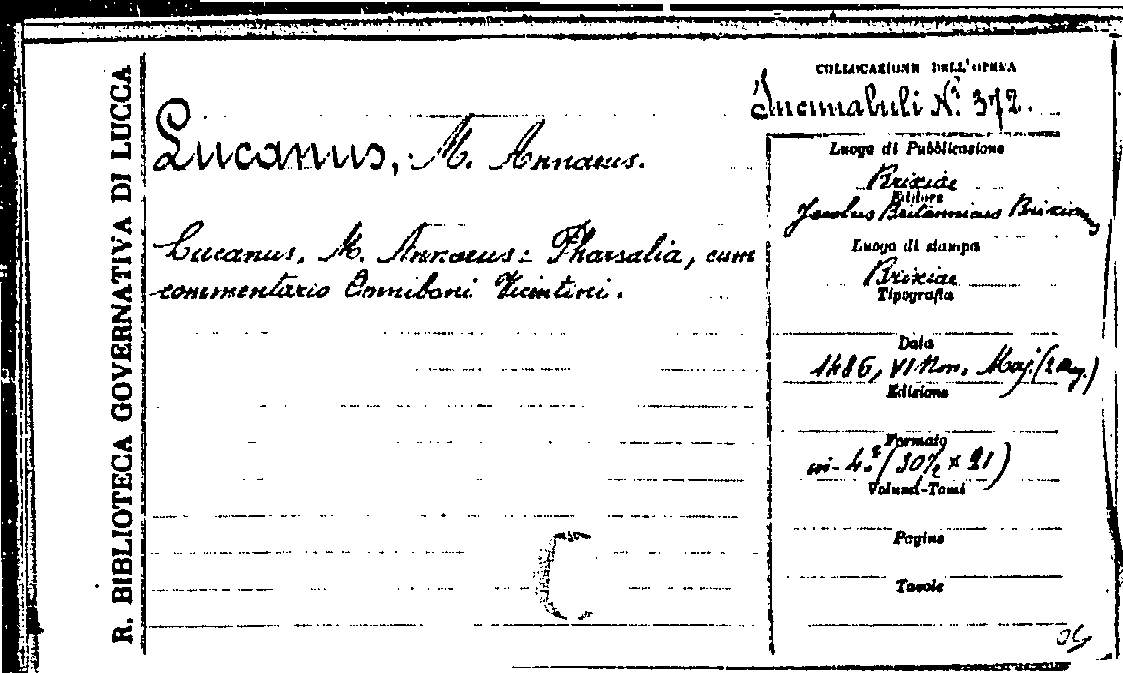 R. BIBLIOTECA GOVERNATIVA DI LUCCA
Lucanus, M. Annaeus.
Lucanus, M. Annaeus: Pharsalia, cum
commentario Omniboni Vicentini.
COLLOCAZIONE DELL'OPERA
Incunabuli N.° 372.
Luogo di Pubblicazione
Brixiae
Editore
Jacobus Britannicus Brixianus
Luogo di stampa
Brixiae
Tipografia
Data
1486, VI Non. Maj. (2 Mag.)
Edizione
Formato
in-4.° (30½ × 21)
Volumi-Tomi
Pagine
Tavole